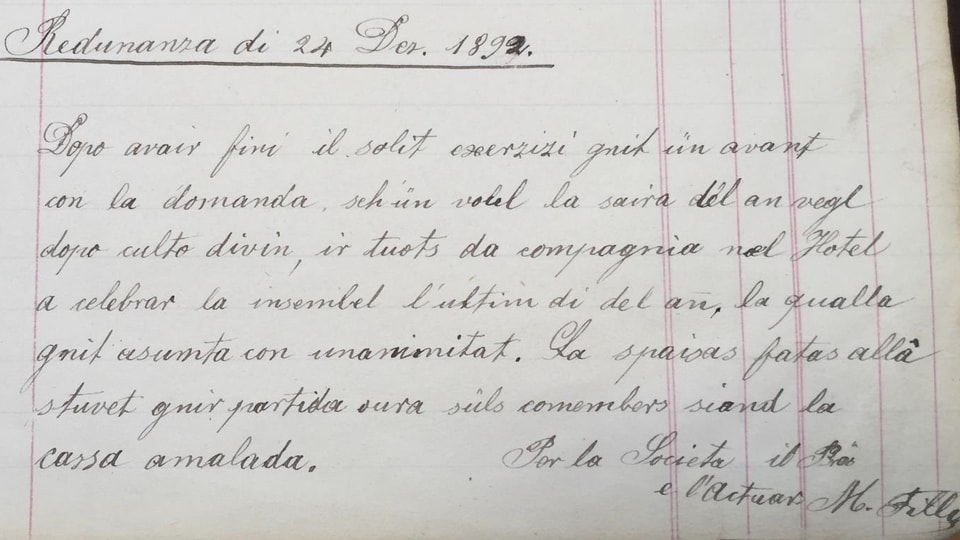 Redunanza di 24 Dez. 1892.
Dopo avair fini il solit exerzizi gnit ün avant
con la domanda, sch ün volel la saira del an vegl
dopo culto divin, ir tuots da compagnia nel Hotel
a celebrar la insembel l'ultim di del añ, la qualla
gnit asumta con unanimitat. La spaisas fatas allâ
stuvet gnir partida oura süls comembers siand la
cassa amalada.
Per la Societa il
e l'Actuar M.